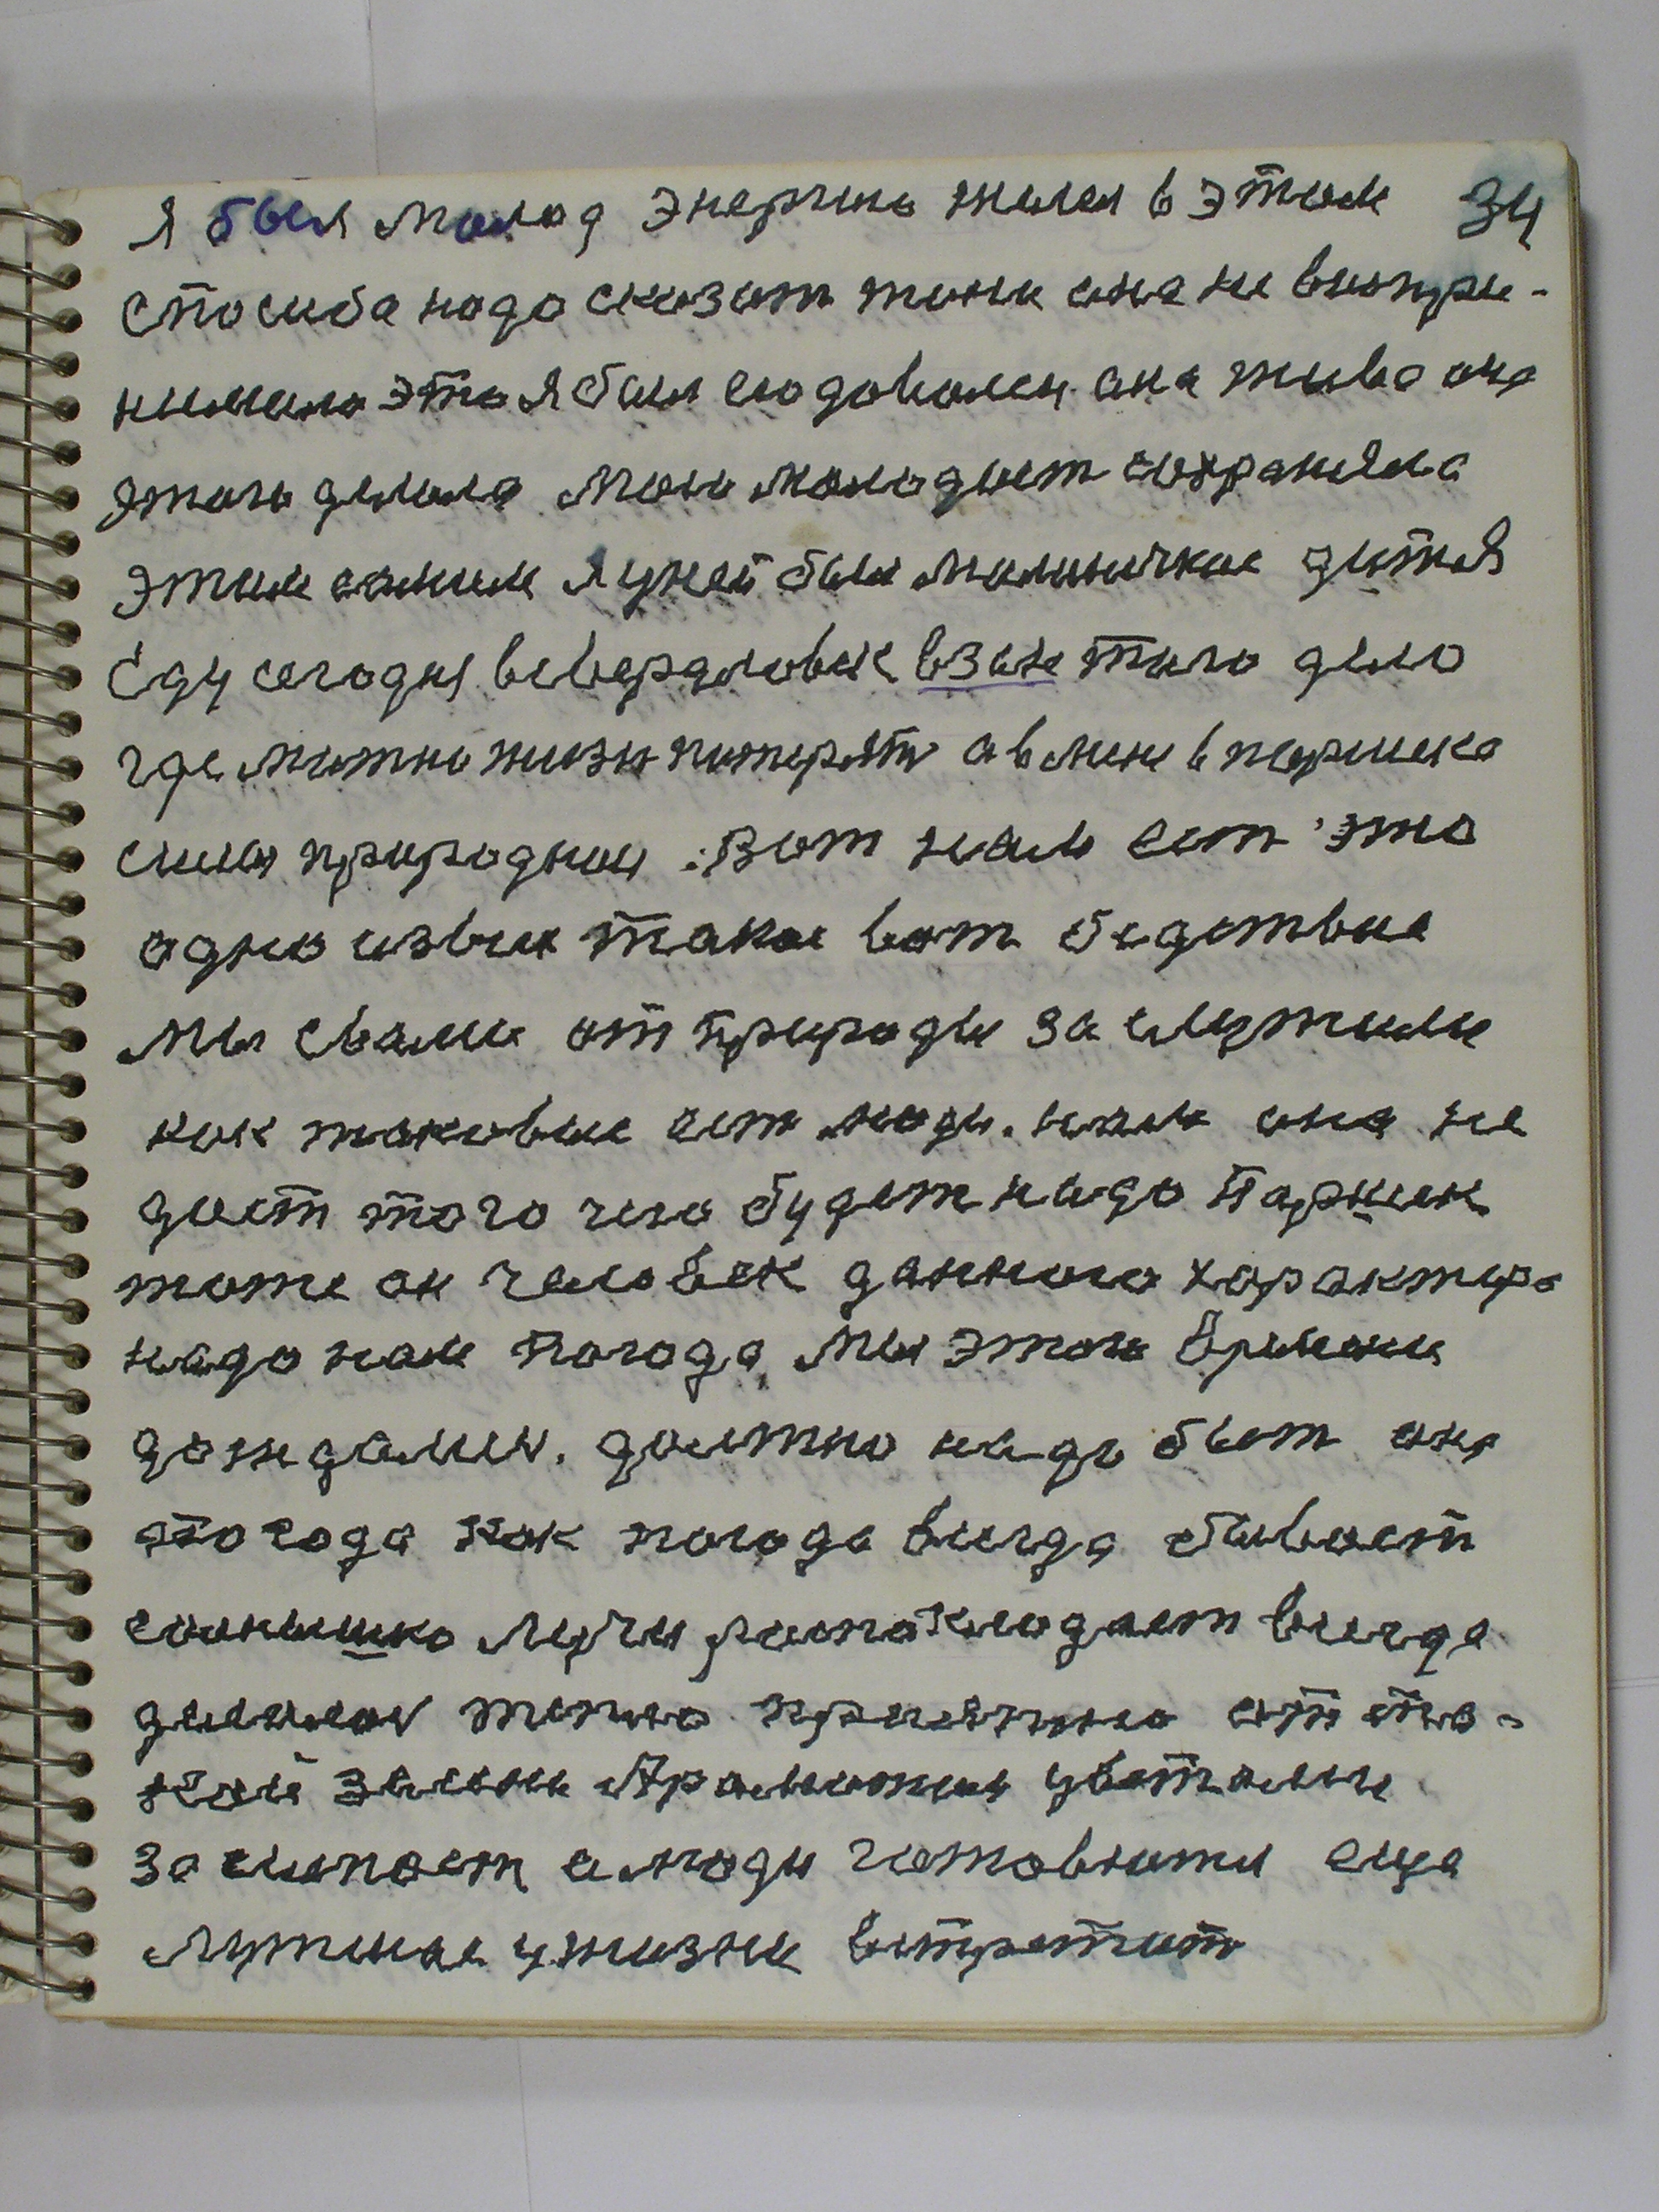 Я был молод энергию жилел в этом 34
спосиба надо сказат жони она не воспри-
нимала это я был ею доволен. она жива она
этого делала мою молодост сохраняла
этим самим Я у ней был малиничкое дитя
Еду сегодня всвердловск взоне того дело
где можно жизн потерят а в мене в первика
силы природнои. Вот нам ест это
одно из вих такое вот бедствие
мы свами от природы заслужили
как таковые ест люди. нам она не
дает того чего будет надо парник
тоже он человек данного характера
надо нам погода, мы этого времени
дождалис. должно надо быт она
погода как погода всегда бывает
солнышко лучи роспокладает всегда
делалос тепло приятно от та-
кой зелени Ароматы цветами
засипает а люди готовитис еще
лутшие у жизни встретит